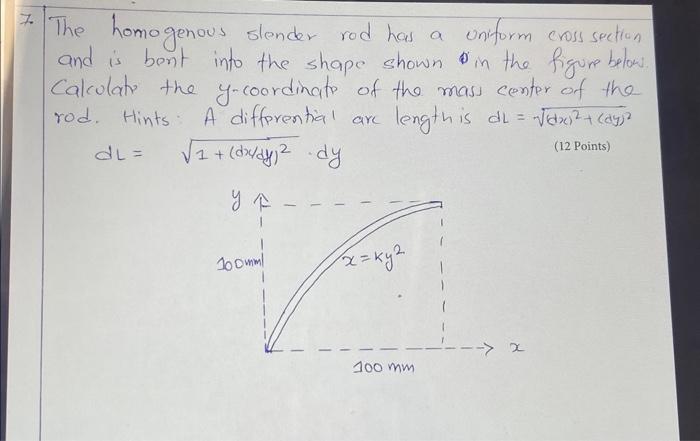 7. The homogenous slender rod has a uniform cross section
and is bent into the shape shown in the figure below.
Calculate the y-coordinate of the mass center of the
rod. Hints: A differential arc length is dL = √(dx)²+(dy)²
dL = √1+(dx/dy)² · dy
(12 Points)
y
100mm
x=ky²
x
100 mm